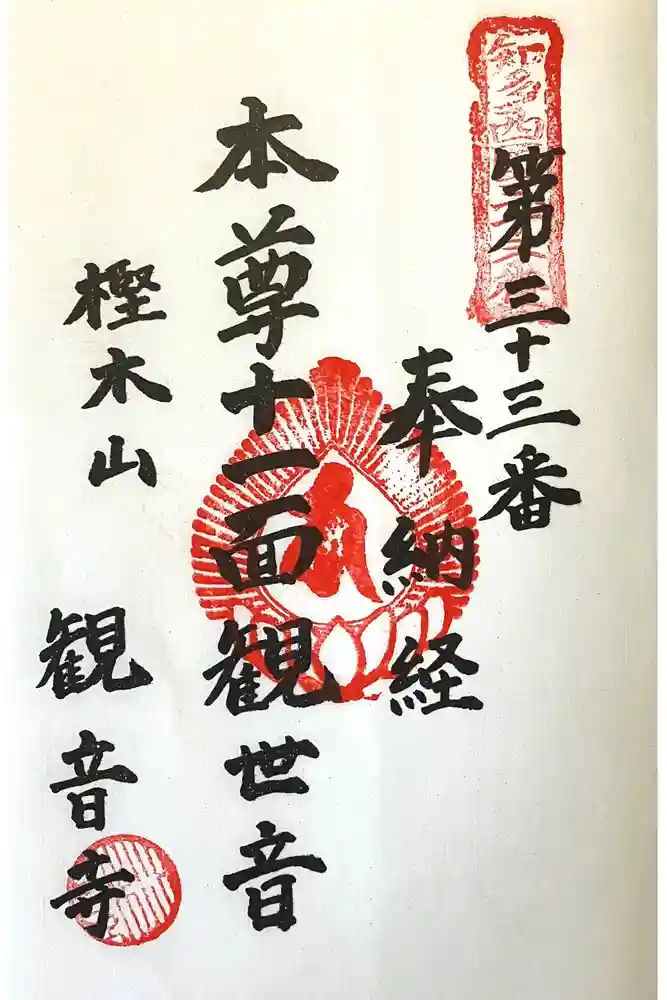 知多西
第三十三番
奉納経
本尊十一面観世音
樫木山
観音寺